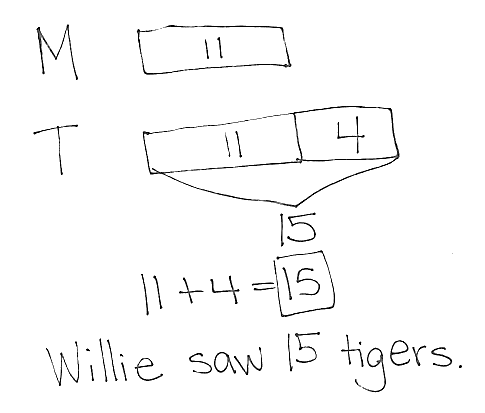 M 11
T 11 4
15
11 + 4 = 15
Willie saw 15 tigers.